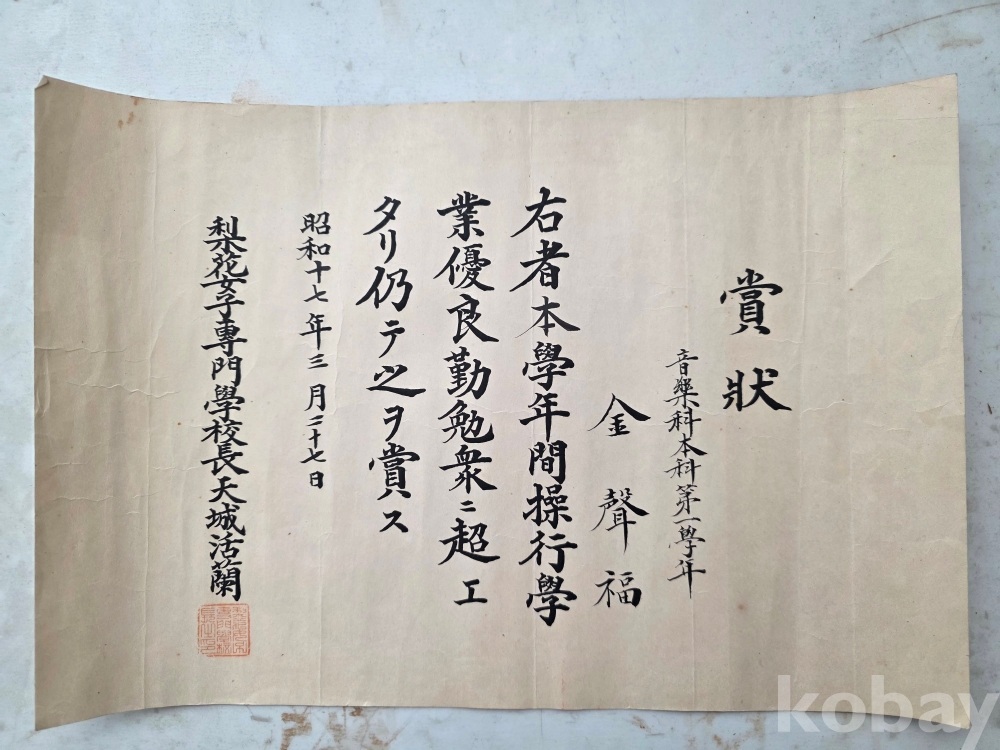 賞狀
音樂科本科第一學年
金聲福
右者本學年間操行學
業優良勤勉衆ニ超エ
タリ仍テ之ヲ賞ス
昭和十七年三月二十七日
梨花女子專門學校長天城活蘭
kobay